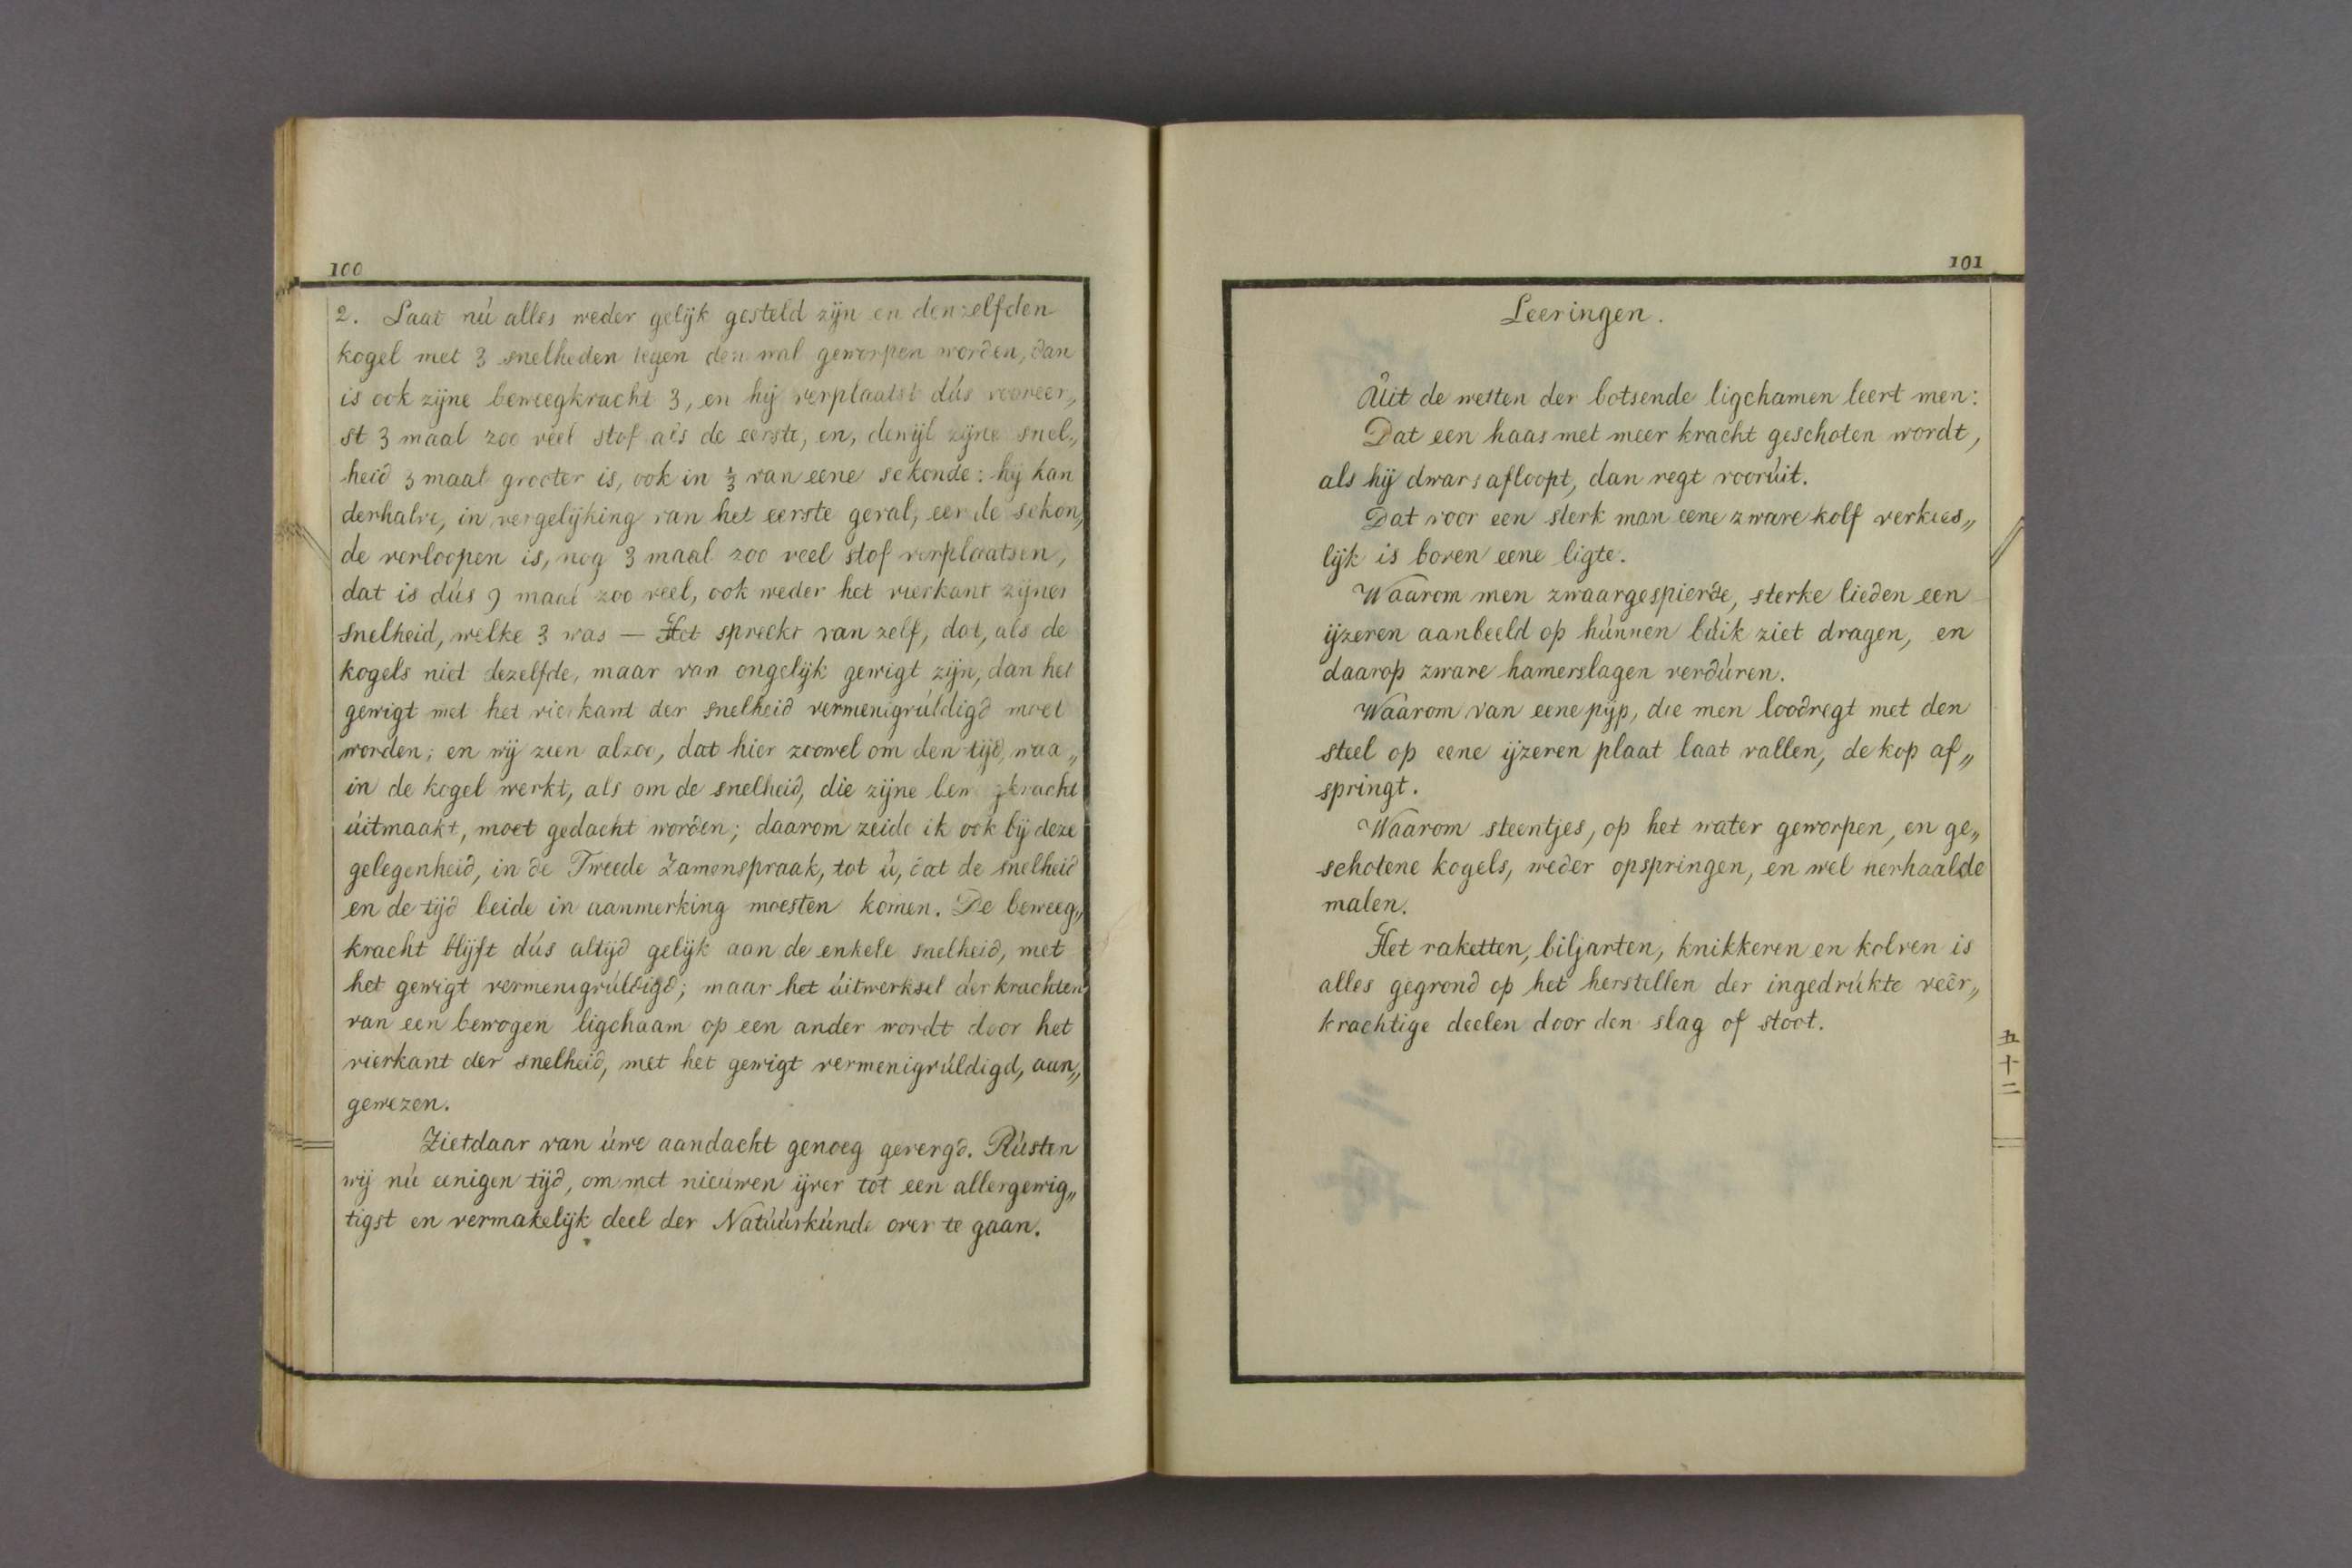 100
2. Laat nú alles weder gelijk gesteld zijn en denzelfden
kogel met 3 snelheden tegen den wal geworpen worden, dan
is ook zijne beweegkracht 3, en hij verplaatst dús vooreer„
st 3 maal zoo veel stof als de eerste, en, dewijl zijne snel„
heid 3 maal grooter is, ook in ⅓ van eene sekonde: hij kan
derhalve, in vergelijking van het eerste geval, eer de sekon„
de verloopen is, nog 3 maal zoo veel stof verplaatsen,
dat is dús 9 maal zoo veel, ook weder het vierkant zijner
snelheid, welke 3 was — Het spreekt van zelf, dat, als de
kogels niet dezelfde, maar van ongelijk gewigt zijn, dan het
gewigt met het vierkant der snelheid vermenigvúldigd moet
worden; en wij zien alzoo, dat hier zoowel om den tijd, waa„
in de kogel werkt, als om de snelheid, die zijne beweegkracht
úitmaakt, moet gedacht worden; daarom zeide ik ook bij deze
gelegenheid, in de Tweede Zamenspraak, tot ú, dat de snelheid
en de tijd beide in aanmerking moesten komen. De beweeg„
kracht blijft dús altijd gelijk aan de enkele snelheid, met
het gewigt vermenigvúldigd; maar het úitwerksel der krachten
van een bewogen ligchaam op een ander wordt door het
vierkant der snelheid, met het gewigt vermenigvúldigd, aan„
gewezen.
Zietdaar van úwe aandacht genoeg gevergd. Rústen
wij nú eenigen tijd, om met nieúwen ijver tot een allergewig„
tigst en vermakelijk deel der Natúúrkúnde over te gaan.
101
Leeringen.
Úit de wetten der botsende ligchamen leert men:
Dat een haas met meer kracht geschoten wordt,
als hij dwars afloopt, dan regt voorúit.
Dat voor een sterk man eene zware kolf verkies„
lijk is boven eene ligte.
Waarom men zwaargespierde, sterke lieden een
ijzeren aanbeeld op húnnen búik ziet dragen, en
daarop zware hamerslagen verdúren.
Waarom van eene pijp, die men loodregt met den
steel op eene ijzeren plaat laat vallen, de kop af„
springt.
Waarom steentjes, op het water geworpen, en ge„
schotene kogels, weder opspringen, en wel herhaalde
malen.
Het raketten, biljarten, knikkeren en kolven is
alles gegrond op het herstellen der ingedrúkte veêr„
krachtige deelen door den slag of stoot.
五十二